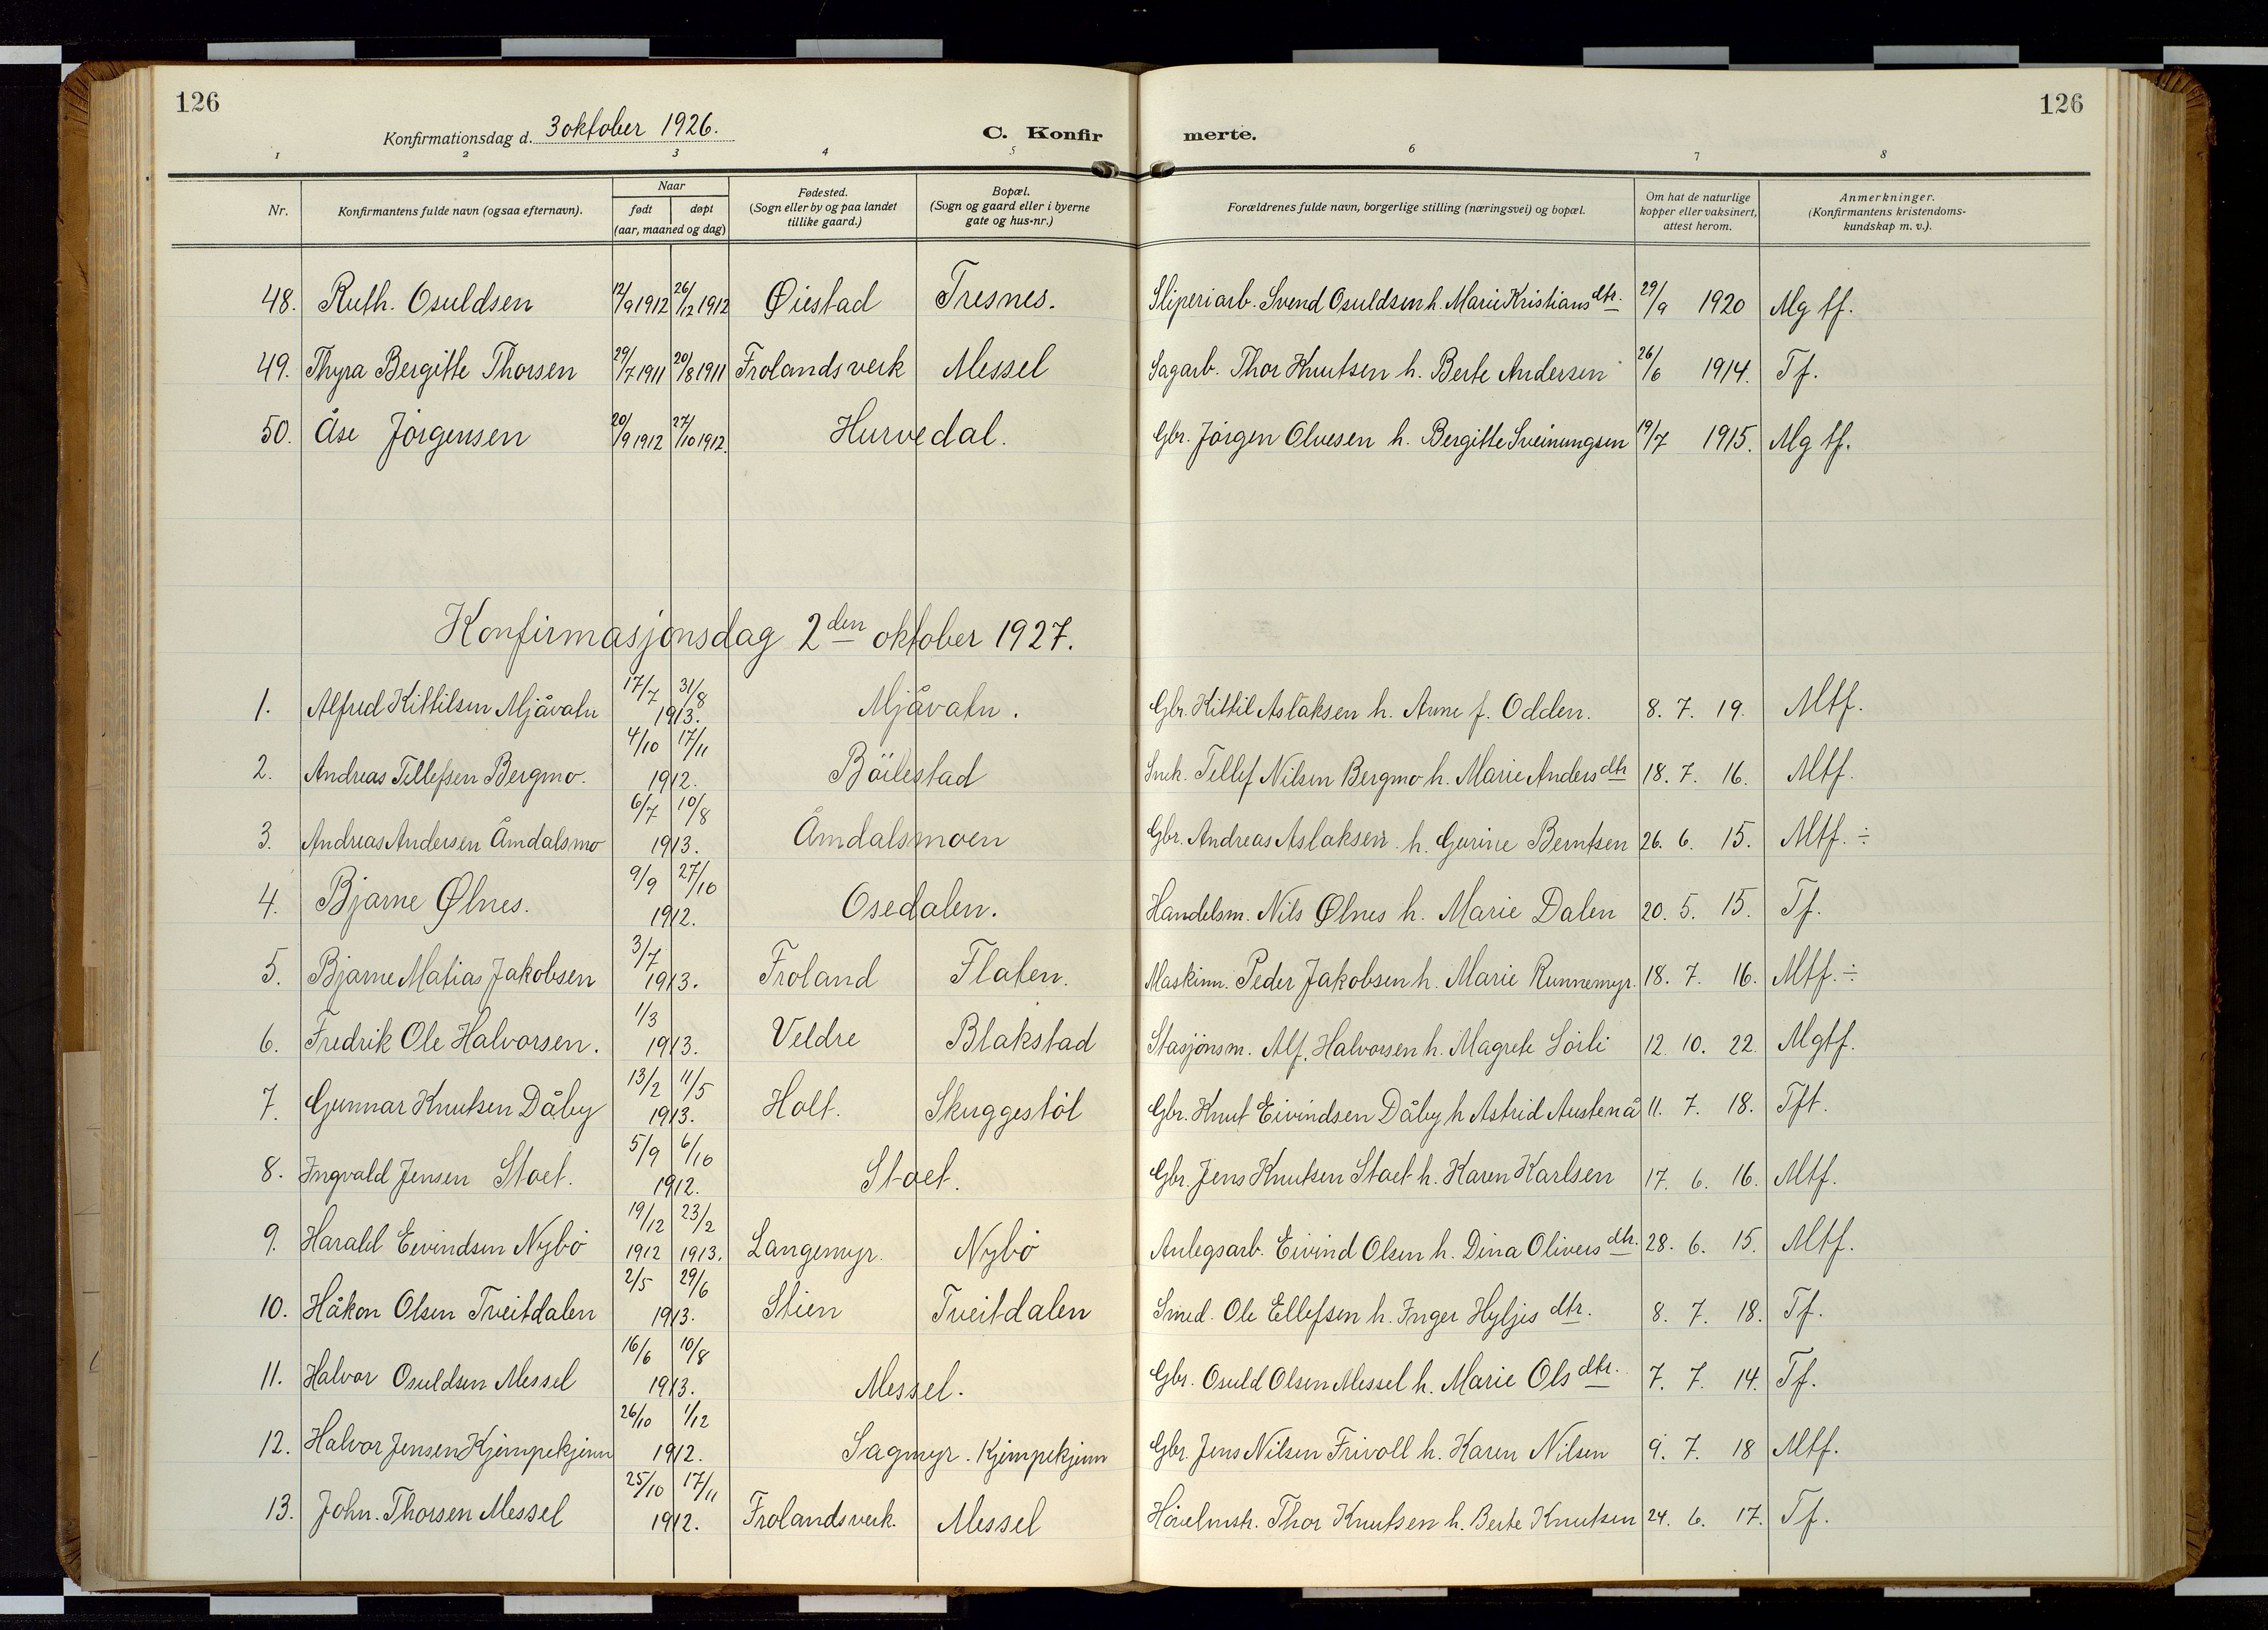 126
126
Konfirmationsdag d. 3 oktober 1926.
C. Konfir merte.
1 2 3 4 5 6 7 8
Nr.
Konfirmantens fulde navn (ogsaa efternavn).
Naar
født døpt
(aar, maaned og dag)
Fødested.
(Sogn eller by og paa landet
tillike gaard.)
Bopæl.
(Sogn og gaard eller i byerne
gate og hus-nr.)
Forældrenes fulde navn, borgerlige stilling (næringsvei) og bopæl.
Om hat de naturlige
kopper eller vaksinert,
attest herom.
Anmerkninger.
(Konfirmantens kristendoms-
kundskap m. v.).
48. Ruth. Osuldsen 12/9 1912 26/12 1912 Øiestad Tresnes. Sliperiarb. Svend Osuldsen h. Marie Kristiansdtr. 29/9 1920 Mg tf.
49. Thyra Bergitte Thorsen 29/7 1911 20/8 1911 Frolandsverk Messel Sagarb. Thor Knutsen h. Berte Andersen 26/6 1914. Tf.
50. Åse Jörgensen 20/9 1912 27/10 1912. Hurvedal. Gbr. Jörgen Olvesen h. Bergitte Sveinungsen 19/7 1915. Mg tf.
Konfirmasjonsdag 2den oktober 1927.
1. Alfred Kittilsen Mjåvatn 17/7 31/8 1913. Mjåvatn. Gbr. Kittil Aslaksen h. Anne f. Odden. 8. 7. 19. Mtf.
2. Andreas Tellefsen Bergmo. 4/10 17/11 1912. Böilestad Snek. Tellef Nilsen Bergmo h. Marie Andersdtr 18. 7. 16. Mtf.
3. Andreas Andersen Åmdalsmo 6/7 10/8 1913. Åmdalsmoen Gbr. Andreas Aslaksen h. Gurine Berntsen 26. 6. 15. Mtf. ÷
4. Bjarne Ølnes. 9/9 27/10 1912. Osedalen. Handelsm. Nils Ølnes h. Marie Dalen 20. 5. 15. Tf.
5. Bjarne Matias Jakobsen 3/7 1913. Froland Flaten. Maskinm. Peder Jakobsen h. Marie Runnemyr. 18. 7. 16. Mtf. ÷
6. Fredrik Ole Halvorsen. 1/3 1913. Veldre Blakstad Stasjonsm. Alf. Halvorsen h. Magrete Lörli 12. 10. 22. Mgtf.
7. Gunnar Knutsen Dåby 13/2 11/5 1913. Holt. Skuggestöl Gbr. Knut Eivindsen Dåby h Astrid Austenå 11. 7. 18. Tft.
8. Ingvald Jensen Stoet. 5/9 6/10 1912. Stoet. Gbr. Jens Knutsen Stoet h. Karen Karlsen 17. 6. 16. Mtf.
9. Harald Eivindsen Nybö 19/12 1912 23/2 1913. Langemyr. Nybö Anlegsarb. Eivind Olsen h. Dina Oliversdtr. 28. 6. 15. Mtf.
10. Håkon Olsen Tveitdalen 2/5 29/6 1913. Stien Tveitdalen Smed. Ole Ellefsen h. Inger Hyljes dtr. 8. 7. 18. Tf.
11. Halvor Osuldsen Messel 16/6 10/8 1913. Messel. Gbr. Osuld Olsen Messel h. Marie Olsdtr. 7. 7. 14. Tf.
12. Halvor Jensen Kjempekjenn 26/10 1/12 1912. Sagmyr. Kjempekjenn Gbr. Jens Nilsen Frivoll h. Karen Nilsen 9. 7. 18 Mtf.
13. John. Thorsen Messel 25/10 17/11 1912. Frolandsverk. Messel Hövelmstr. Thor Knutsen h. Berte Knutsen 24. 6. 17. Tf.